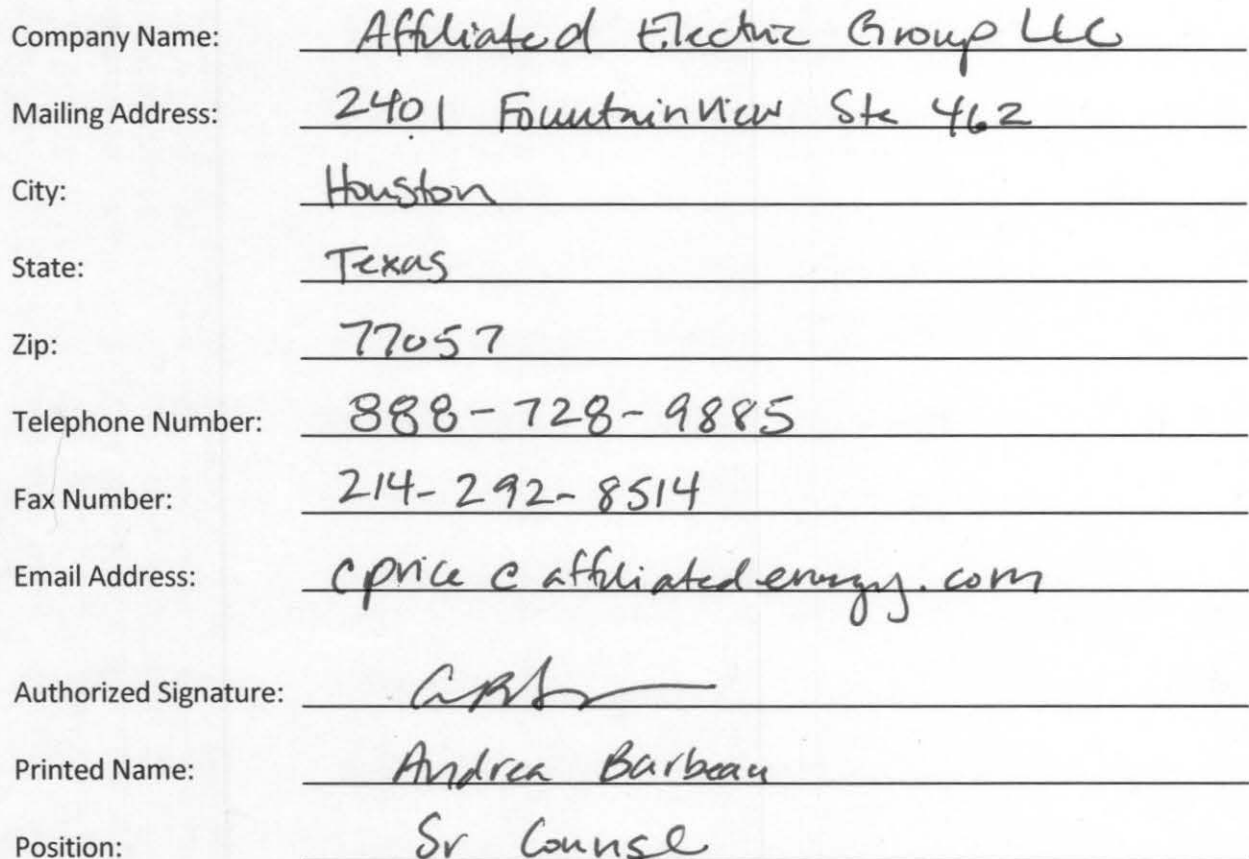 Company Name: Affiliated Electric Group LLC
Mailing Address: 2401 Fountainview Ste 462
City: Houston
State: Texas
Zip: 77057
Telephone Number: 888-728-9885
Fax Number: 214-292-8514
Email Address: cprice @ affiliatedenergy.com
Authorized Signature:
Printed Name: Andrea Barbeau
Position: Sr Counsel